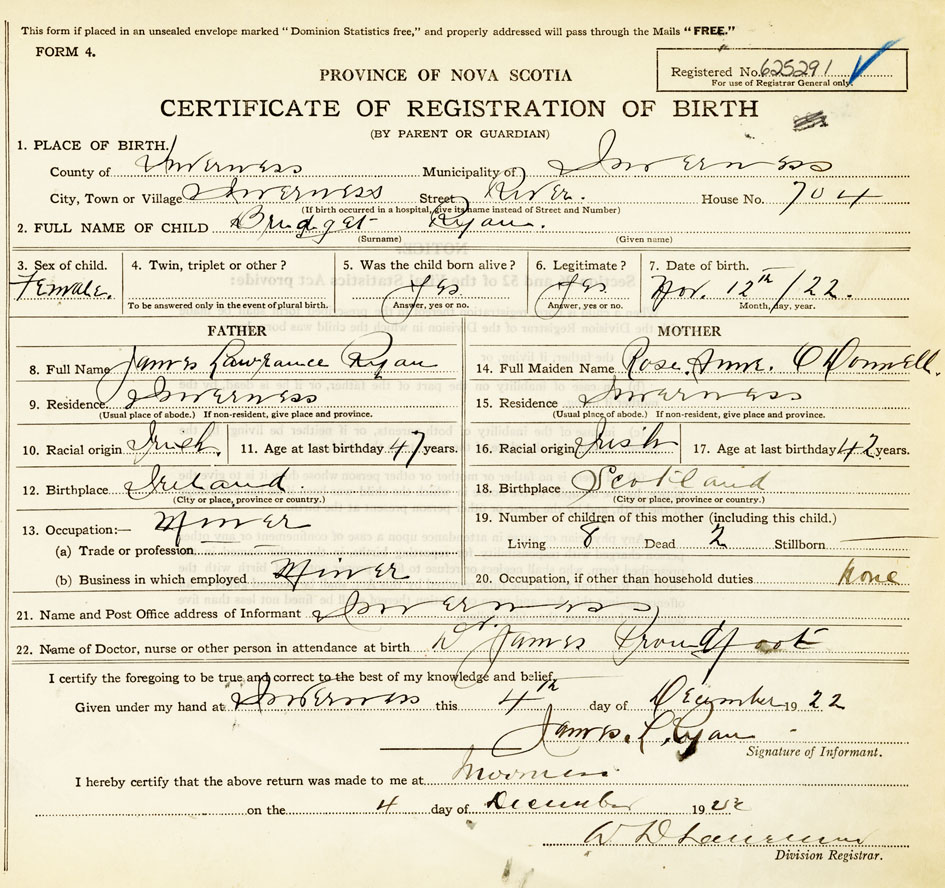 This form if placed in an unsealed envelope marked "Dominion Statistics free," and properly addressed will pass through the Mails "FREE."
FORM 4.
Registered No. 625291
For use of Registrar General only.
PROVINCE OF NOVA SCOTIA
CERTIFICATE OF REGISTRATION OF BIRTH
(BY PARENT OR GUARDIAN)
1. PLACE OF BIRTH.
County of Inverness Municipality of Inverness
City, Town or Village Inverness Street River. House No. 704
(If birth occurred in a hospital, give its name instead of Street and Number)
2. FULL NAME OF CHILD Bridget Ryan.
(Surname) (Given name)
3. Sex of child. 4. Twin, triplet or other? 5. Was the child born alive? 6. Legitimate? 7. Date of birth.
Female. Yes Yes Nov. 12th/22.
To be answered only in the event of plural birth. Answer, yes or no. Answer, yes or no. Month, day, year.
FATHER
8. Full Name James Lawrance Ryan
9. Residence Inverness
(Usual place of abode.) If non-resident, give place and province.
10. Racial origin Irish. 11. Age at last birthday 47 years.
12. Birthplace Ireland
(City or place, province or country.)
13. Occupation:— Miner
(a) Trade or profession
(b) Business in which employed Miner
MOTHER
14. Full Maiden Name Rose Anne. O'Donnell.
15. Residence Inverness
(Usual place of abode.) If non-resident, give place and province.
16. Racial origin Irish 17. Age at last birthday 42 years.
18. Birthplace Scotland
(City or place, province or country.)
19. Number of children of this mother (including this child.)
Living 8 Dead 2 Stillborn
20. Occupation, if other than household duties. None
21. Name and Post Office address of Informant Inverness
22. Name of Doctor, nurse or other person in attendance at birth Dr. James Proudfoot
I certify the foregoing to be true and correct to the best of my knowledge and belief.
Given under my hand at Inverness this 4th day of December 1922
James. L. Ryan
Signature of Informant.
I hereby certify that the above return was made to me at Inverness
on the 4 day of December 1922
W D
Division Registrar.